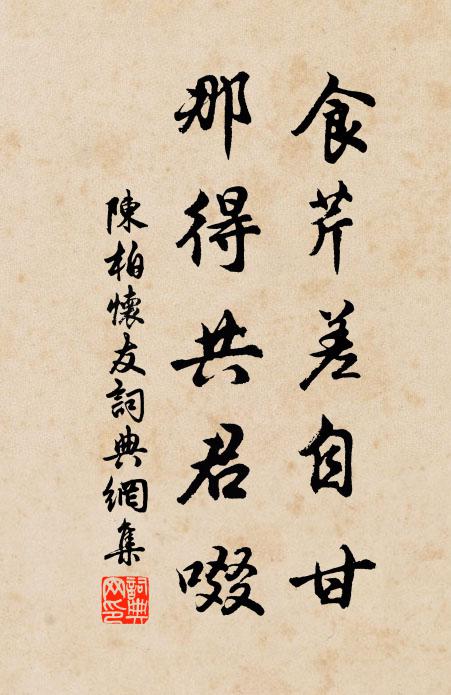 食芹差自甘
那得共君啜
陳柏懷友詞典網集
詞典
网印